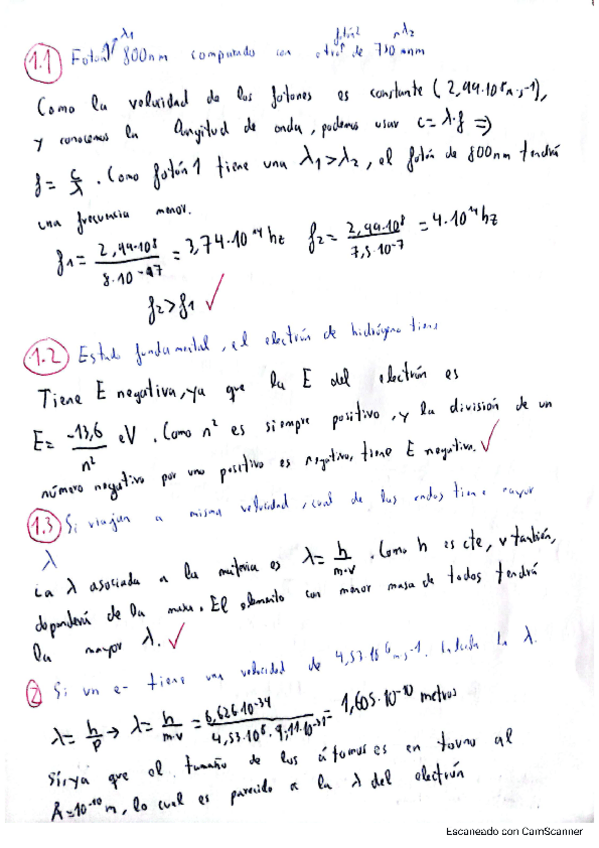 λ1 fotón nλ2
1.1 Fotón 1 800nm comparado con otro de 750nm
Como la velocidad de los fotones es constante (2,99·10⁸m·s-1),
y conocemos la longitud de onda, podemos usar c=λ·f ⇒
f= c/λ. Como fotón 1 tiene una λ1>λ2, el fotón de 800nm tendrá
una frecuencia menor.
f1= 2,99·10⁸ / 8·10⁻⁷ = 3,74·10¹⁴ hz f2= 2,99·10⁸ / 7,5·10⁻⁷ = 4·10¹⁴ hz
f2>f1 ✓
1.2 Estado fundamental, el electrón de hidrógeno tiene
Tiene E negativa, ya que la E del electrón es
E= -13,6/n² eV. Como n² es siempre positivo, y la división de un
número negativo por uno positivo es negativo, tiene E negativa. ✓
1.3 Si viajan a misma velocidad, cual de los todos tiene mayor
λ
La λ asociada a la materia es λ= h/m·v. Como h es cte, v también,
dependerá de la masa. El elemento con menor masa de todos tendrá
la mayor λ. ✓
2 Si un e- tiene una velocidad de 4,53·10⁶ m·s-1. Calcula la λ.
λ= h/p → λ= h/m·v = 6,626·10⁻³⁴ / 4,53·10⁶·9,11·10⁻³¹ = 1,605·10⁻¹⁰ metros
Si, ya que el tamaño de los átomos es en torno al
Å=10⁻¹⁰m, lo cual es parecido a la λ del electrón
Escaneado con CamScanner